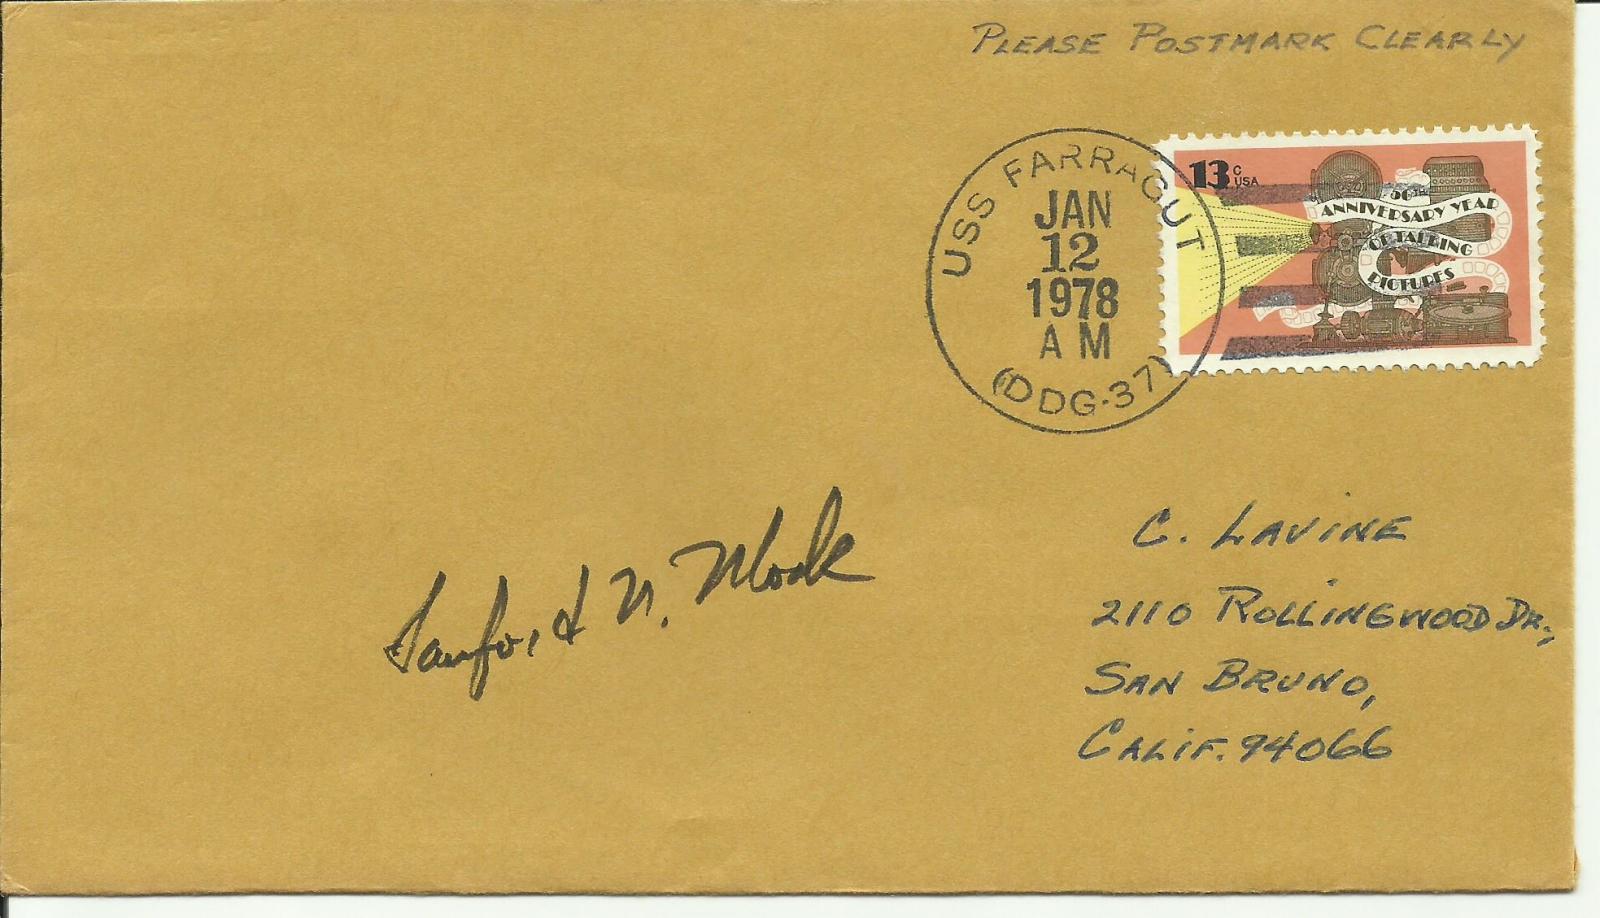 PLEASE POSTMARK CLEARLY
USS FARRAGUT
JAN
12
1978
AM
(DDG-37)
13c USA
50TH
ANNIVERSARY YEAR
OF TALKING
PICTURES
Sanford N. Mock
C. LAVINE
2110 ROLLINGWOOD DR.,
SAN BRUNO,
CALIF. 94066